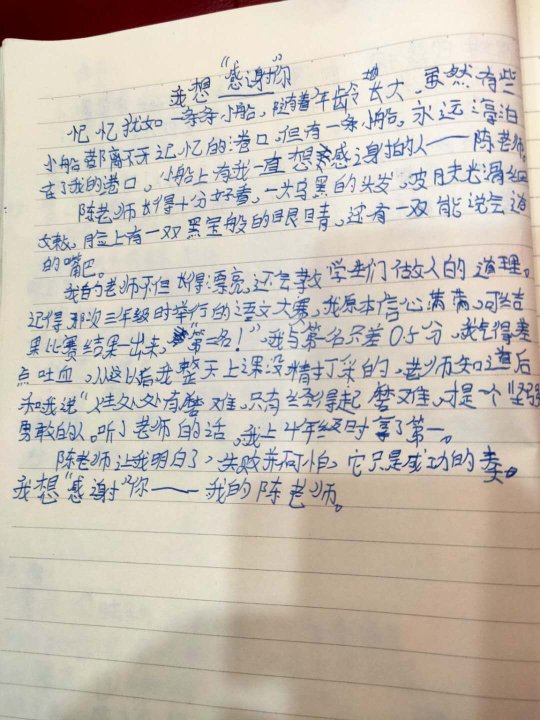 我想“感谢”你
记忆犹如一条条小船，随着年龄增长大，虽然有些
小船都离不开记忆的港口，但有一条小船，永远停泊
在了我的港口，小船上有我一直想要感谢的人——陈老师。
陈老师长得十分好看，一头乌黑的头发，皮肤光滑细
嫩，脸上有一双黑宝般的眼睛，还有一双能说会道
的嘴巴。
我的老师不但长得漂亮，还会教学生们做人的道理。
记得那次三年级时举行的语文大赛，我原本信心满满，可结
果比赛结果出来，“第二名！”，我与第一名只差0.5分，我气得差
点吐血，从这以后我整天上课没精打采的，老师知道后
和我说“人生处处有磨难，只有经得起磨难，才是一个坚强
勇敢的人。听了老师的话，我上4年级时拿了第一。
陈老师让我明白了，失败并不可怕，它只是成功的
我想“感谢”你——我的陈老师。